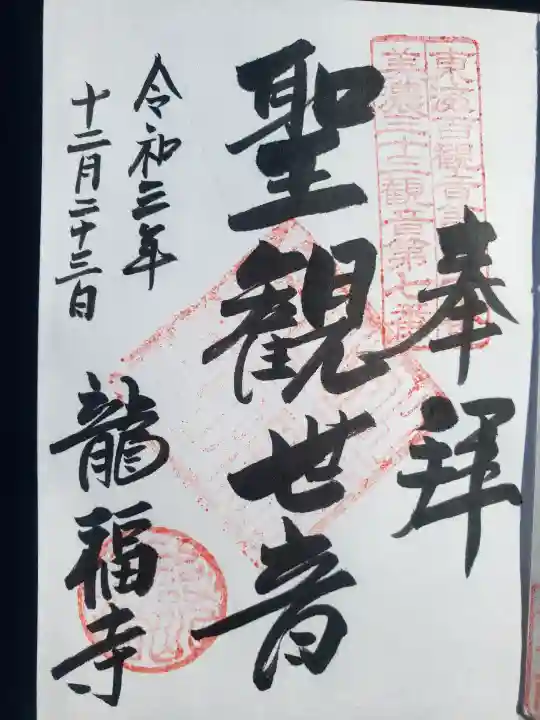 奉拝
美濃三十三観音第七番
聖観世音
令和三年
十二月二十三日
龍福寺